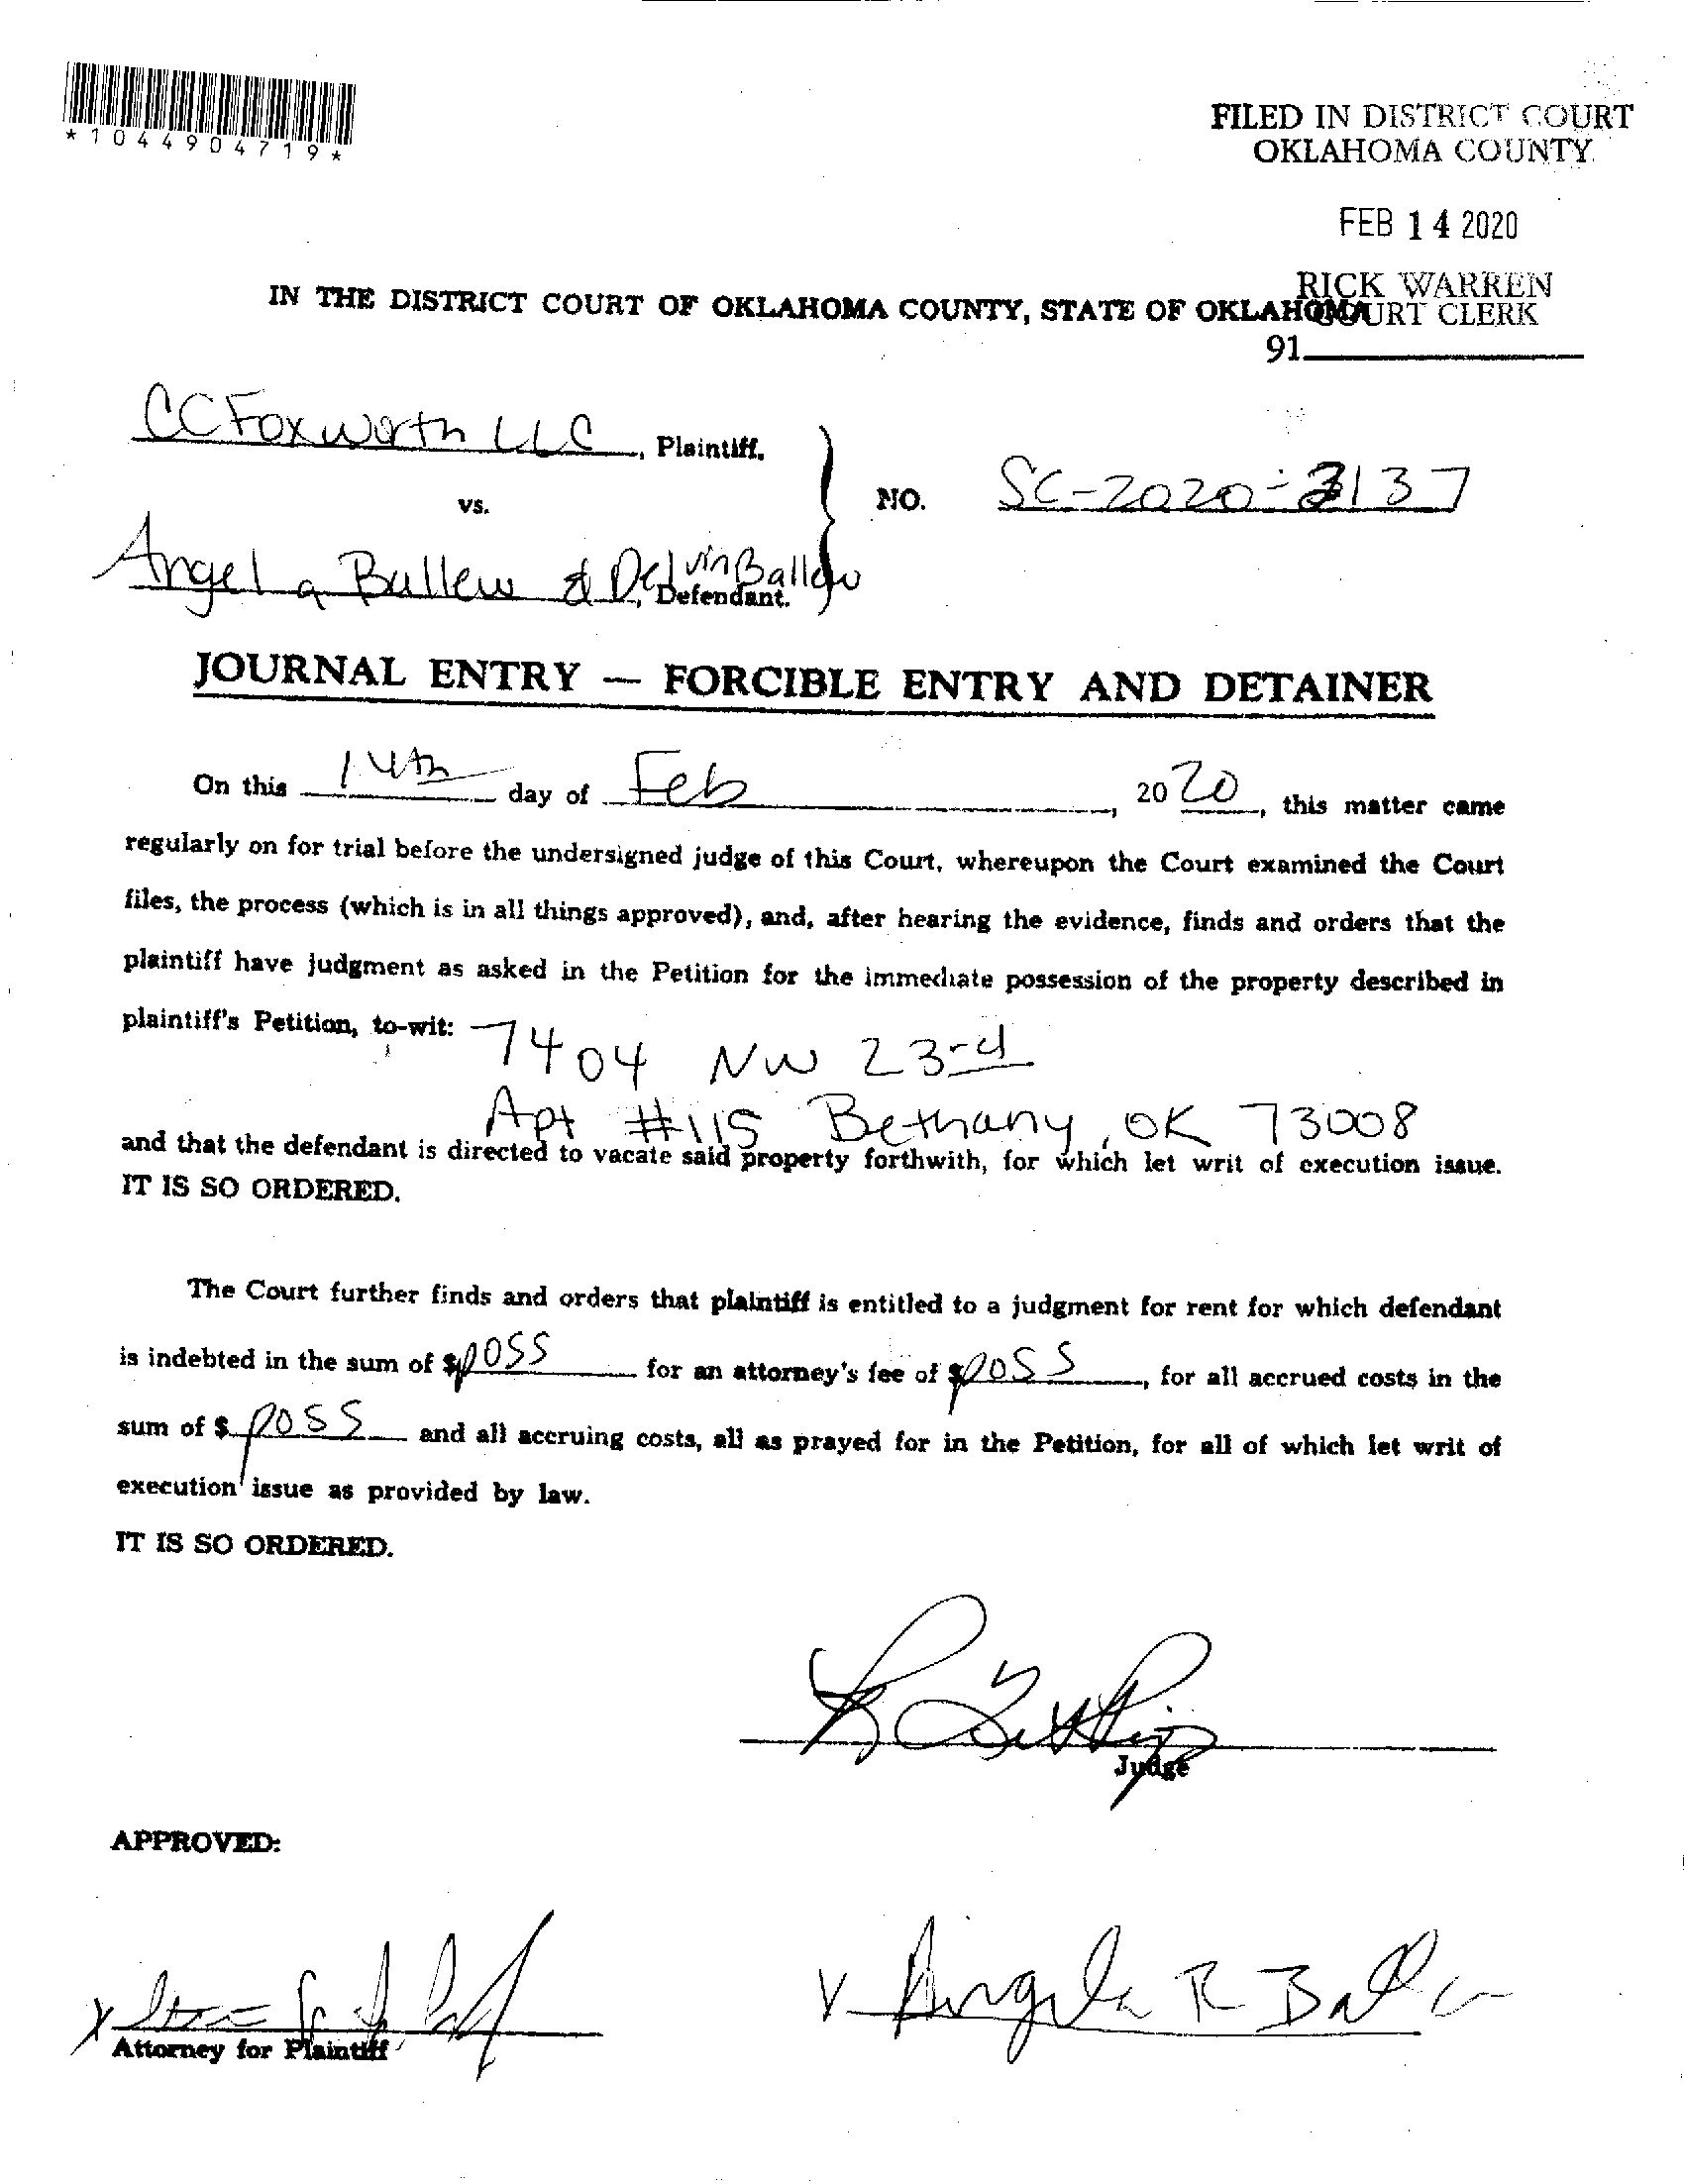 *1044904719*
FILED IN DISTRICT COURT
OKLAHOMA COUNTY
FEB 14 2020
RICK WARREN
COURT CLERK
91
IN THE DISTRICT COURT OF OKLAHOMA COUNTY, STATE OF OKLAHOMA
CC Foxworth LLC, Plaintiff,
vs.
NO. SC-2020-3137
Angela Ballew & Delvin Ballew
Defendant.
JOURNAL ENTRY — FORCIBLE ENTRY AND DETAINER
On this 14th day of Feb, 2020, this matter came
regularly on for trial before the undersigned judge of this Court, whereupon the Court examined the Court
files, the process (which is in all things approved), and, after hearing the evidence, finds and orders that the
plaintiff have judgment as asked in the Petition for the immediate possession of the property described in
plaintiff's Petition, to-wit: 7404 NW 23rd
Apt #115 Bethany, OK 73008
and that the defendant is directed to vacate said property forthwith, for which let writ of execution issue.
IT IS SO ORDERED.
The Court further finds and orders that plaintiff is entitled to a judgment for rent for which defendant
is indebted in the sum of $poss for an attorney's fee of $poss, for all accrued costs in the
sum of $poss and all accruing costs, all as prayed for in the Petition, for all of which let writ of
execution issue as provided by law.
IT IS SO ORDERED.
Judge
APPROVED:
x
Attorney for Plaintiff
x Angela R Ballew